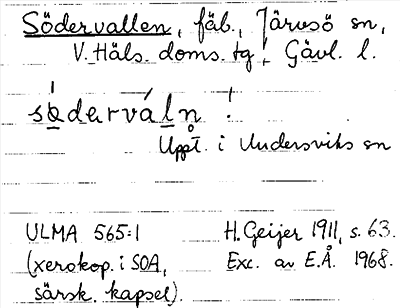 Södervallen, fäb., Järvsö sn,
V. Häls. doms. tg, Gävl. l.
sǿdərváln !
Uppt. i Undersviks sn
ULMA 565:1 H. Geijer 1911, s. 63.
(xerokop. i SOA, Exc. av E.Å. 1968.
särsk. kapsel).